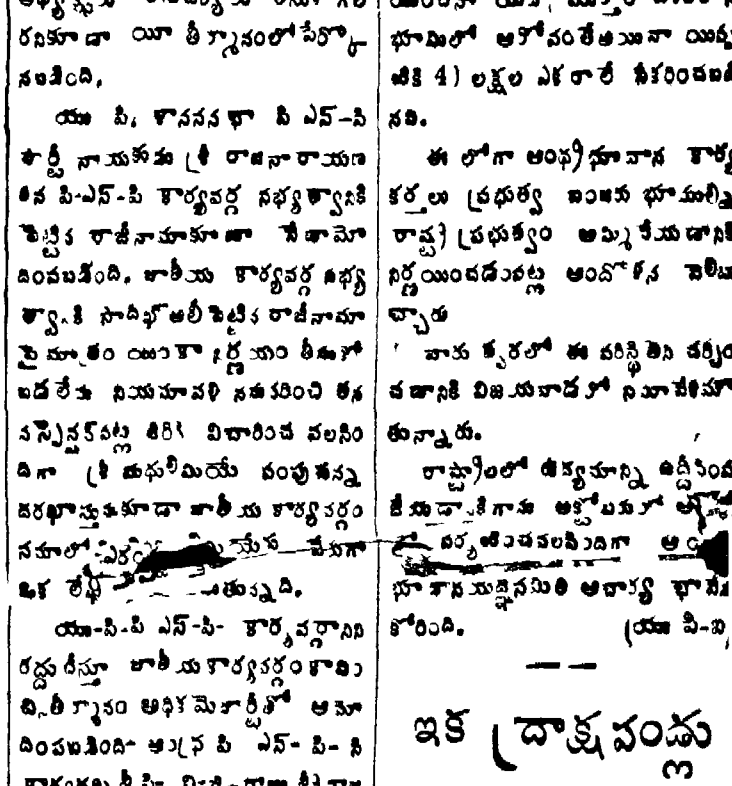 రనికూడా యీ తీర్మానంలో పేర్కొ
నబడింది.
యు పి. శాసనసభా పి ఎస్-పి
పార్టీ నాయకుడు శ్రీ రాజనారాయణ
తన పి-ఎస్-పి కార్యవర్గ సభ్యత్వానికి
పెట్టిన రాజీనామాకూడా నేడామో
దింపబడింది. జాతీయ కార్యవర్గ సభ్య
త్వానికి సాదిఖ్ ఆలీ పెట్టిన రాజీనామా
పై మాత్రం యింకా నిర్ణయం తీసుకో
బడలేదు నియమావళి ననుసరించి తన
సస్పెన్షన్‌పట్ల తిరిగి విచారించ వలసిం
దిగా శ్రీ మధులిమియే పంపుకున్న
దరఖాస్తునుకూడా జాతీయ కార్యవర్గం
సమా
ఒక లేఖ
యు-పి-పి ఎస్-పి- కార్యవర్గానిని
రద్దుచేస్తూ జాతీయకార్యవర్గం కావిం
చిన తీర్మానం అధిక మెజార్టీతో ఆమో
దింపబడింది- ఆంధ్ర పి ఎస్- పి- ని
భూమిలో
టికి 4) లక్షల ఎకరాలే సేకరించబడి
నవి.
ఈ లోగా ఆంధ్ర భూదాన కార్య
కర్తలు ప్రభుత్వ బంజరు భూముల్ని
రాష్ట్ర ప్రభుత్వం అమ్మి వేయడానికి
నిర్ణయించడంపట్ల ఆందోళన వెలిబు
చ్చారు
వారు త్వరలో ఈ పరిస్థితిని చర్చిం
చడానికి విజయవాడలో సమావేశమౌ
తున్నారు.
రాష్ట్రాలలో ఉద్యమాన్ని ఉద్దీపింప
జేయడానికిగాను అక్టోబరులో
పర్యటించవలసిందిగా ఆం
భూదానయజ్ఞసమితి ఆచార్య భావే
కోరింది. (యు పి-ఐ
ఇక ద్రాక్షపండ్లు